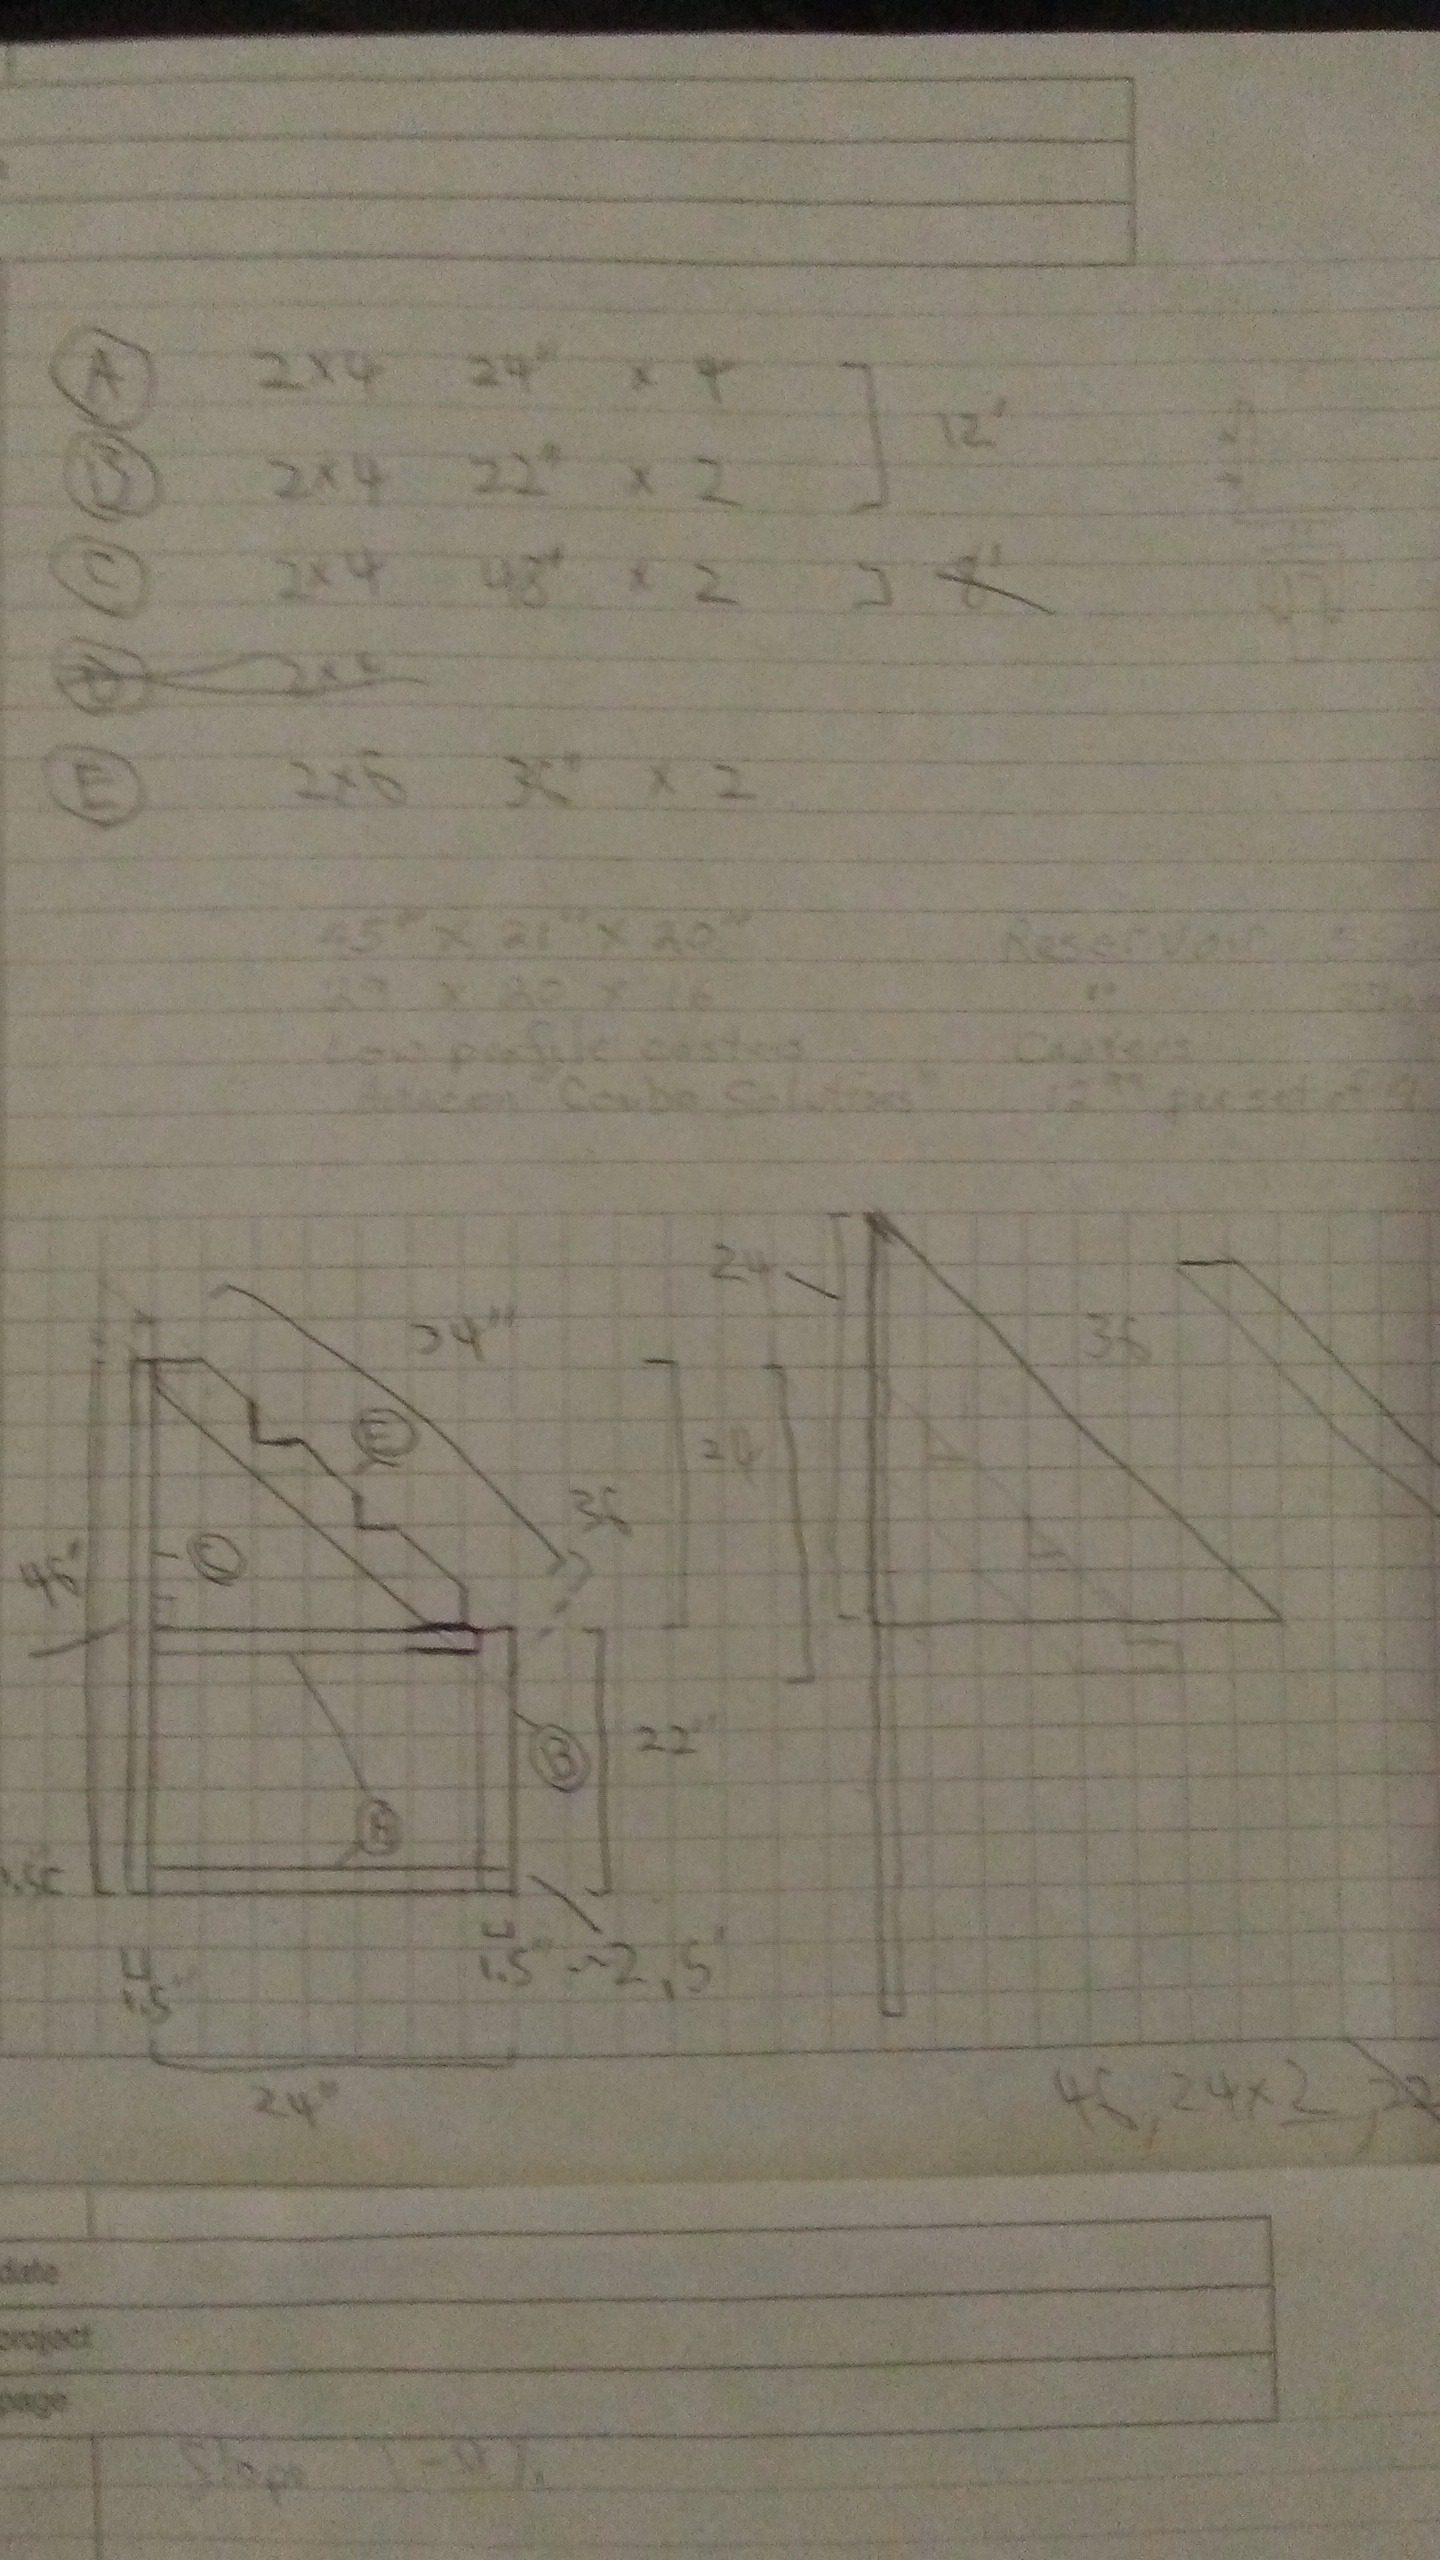 A 2x4 24" x 4
12'
B 2x4 22" x 2
C 2x4 48" x 2 8'
2x
E 2x6 36" x 2
45" x 21" x 20" Reservoir
29 x 20 x 16 "
Low profile casters Casters
Amazon "Combo Solutions" 12.99 per set of 4
24
34"
36
E
24
36
C
48"
B
22"
A
1.5"
1.5" 2.5'
24"
48, 24x2,
date
project
page
Slope